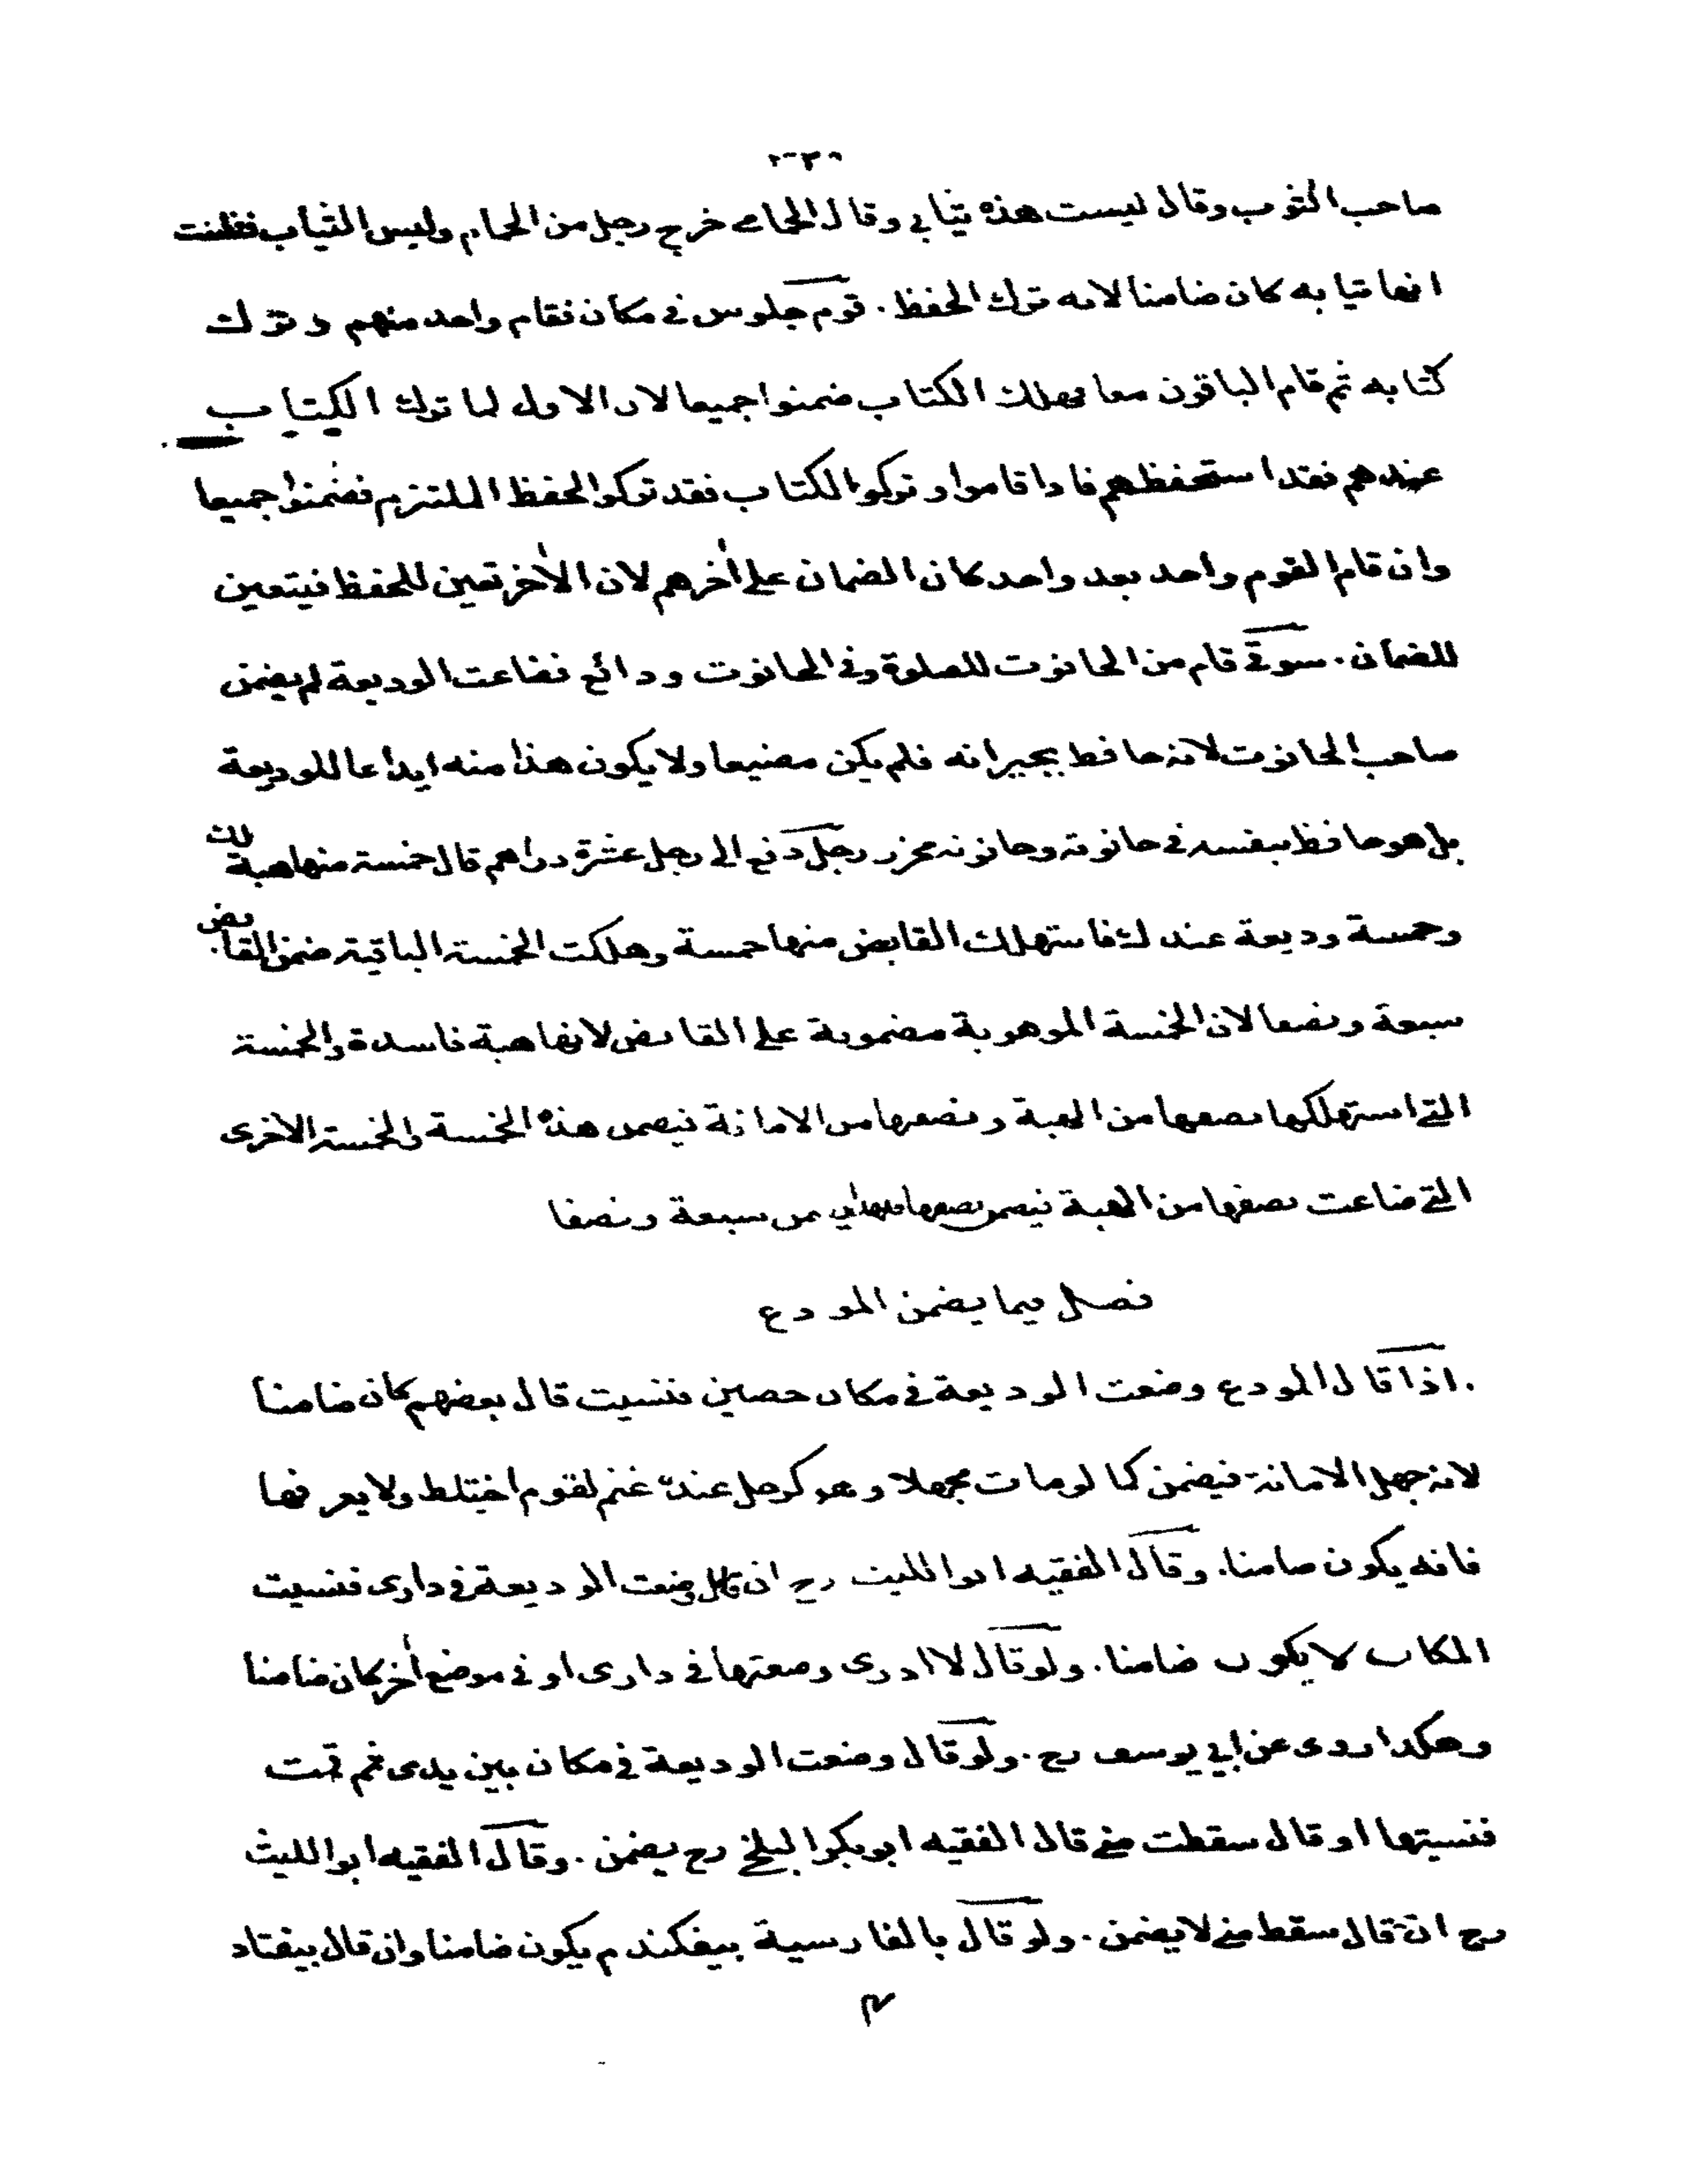 صاحب الثوب وقال ليست هذه ثيابي وقال الحمامي خرج رجل من الحمام ولبس الثياب فظننت
انها ثيابه كان ضامنا لانه ترك الحفظ . قوم جلوس في مكان فقام واحد منهم وترك
كتابه ثم قام الباقون معا فهلك الكتاب ضمنوا جميعا لان الاول لما ترك الكتاب
عندهم فقد استحفظهم فاذا قاموا وتركوا الكتاب فقد تركوا الحفظ الملتزم فضمنوا جميعا
وان قام القوم واحد بعد واحد كان الضمان على أخرهم لان الأخر تعين للحفظ فيتعين
للضمان . سوقي قام من الحانوت للصلوة وفي الحانوت ودائع فضاعت الوديعة لم يضمن
صاحب الحانوت لانه حافظ بجيرانه فلم يكن مضيعا ولا يكون هذا منه ايداعا للوديعة
بل هو حافظ بنفسه في حانوته وحانوته محرز رجل دفع الى رجل عشرة دراهم قال خمسة منها هبة لك
وخمسة وديعة عندك فاستهلك القابض منها خمسة وهلكت الخمسة الباقية ضمن القابض
سبعة ونصفا لان الخمسة الموهوبة مضمونة على القابض لانها هبة فاسدة والخمسة
التي استهلكها نصفها من الهبة ونصفها من الامانة فيضمن هذه الخمسة والخمسة الاخرى
التي ضاعت نصفها من الهبة فيضمن نصفها سبعة ونصفا
فصل فيما يضمن المودع
. اذا قال المودع وضعت الوديعة في مكان حصين فنسيت قال بعضهم كان ضامنا
لانه جهل الامانة فيضمن كما لو مات مجهلا وهو كرجل عنده غنم لقوم اختلط ولا يعرفها
فانه يكون ضامنا . وقال الفقيه ابوالليث رح ان قال وضعت الوديعة في داري فنسيت
المكان لا يكون ضامنا . ولو قال لا ادري وضعتها في داري او في موضع أخر كان ضامنا
وهكذا روى عن ابي يوسف رح . ولو قال وضعت الوديعة في مكان بين يدي ثم قمت
فنسيتها او قال سقطت مني قال الفقيه ابوبكر البلخي رح يضمن . وقال الفقيه ابوالليث
رح ان قال سقط مني لا يضمن . ولو قال بالفارسية بيفكندم يكون ضامنا وان قال بيفتاد